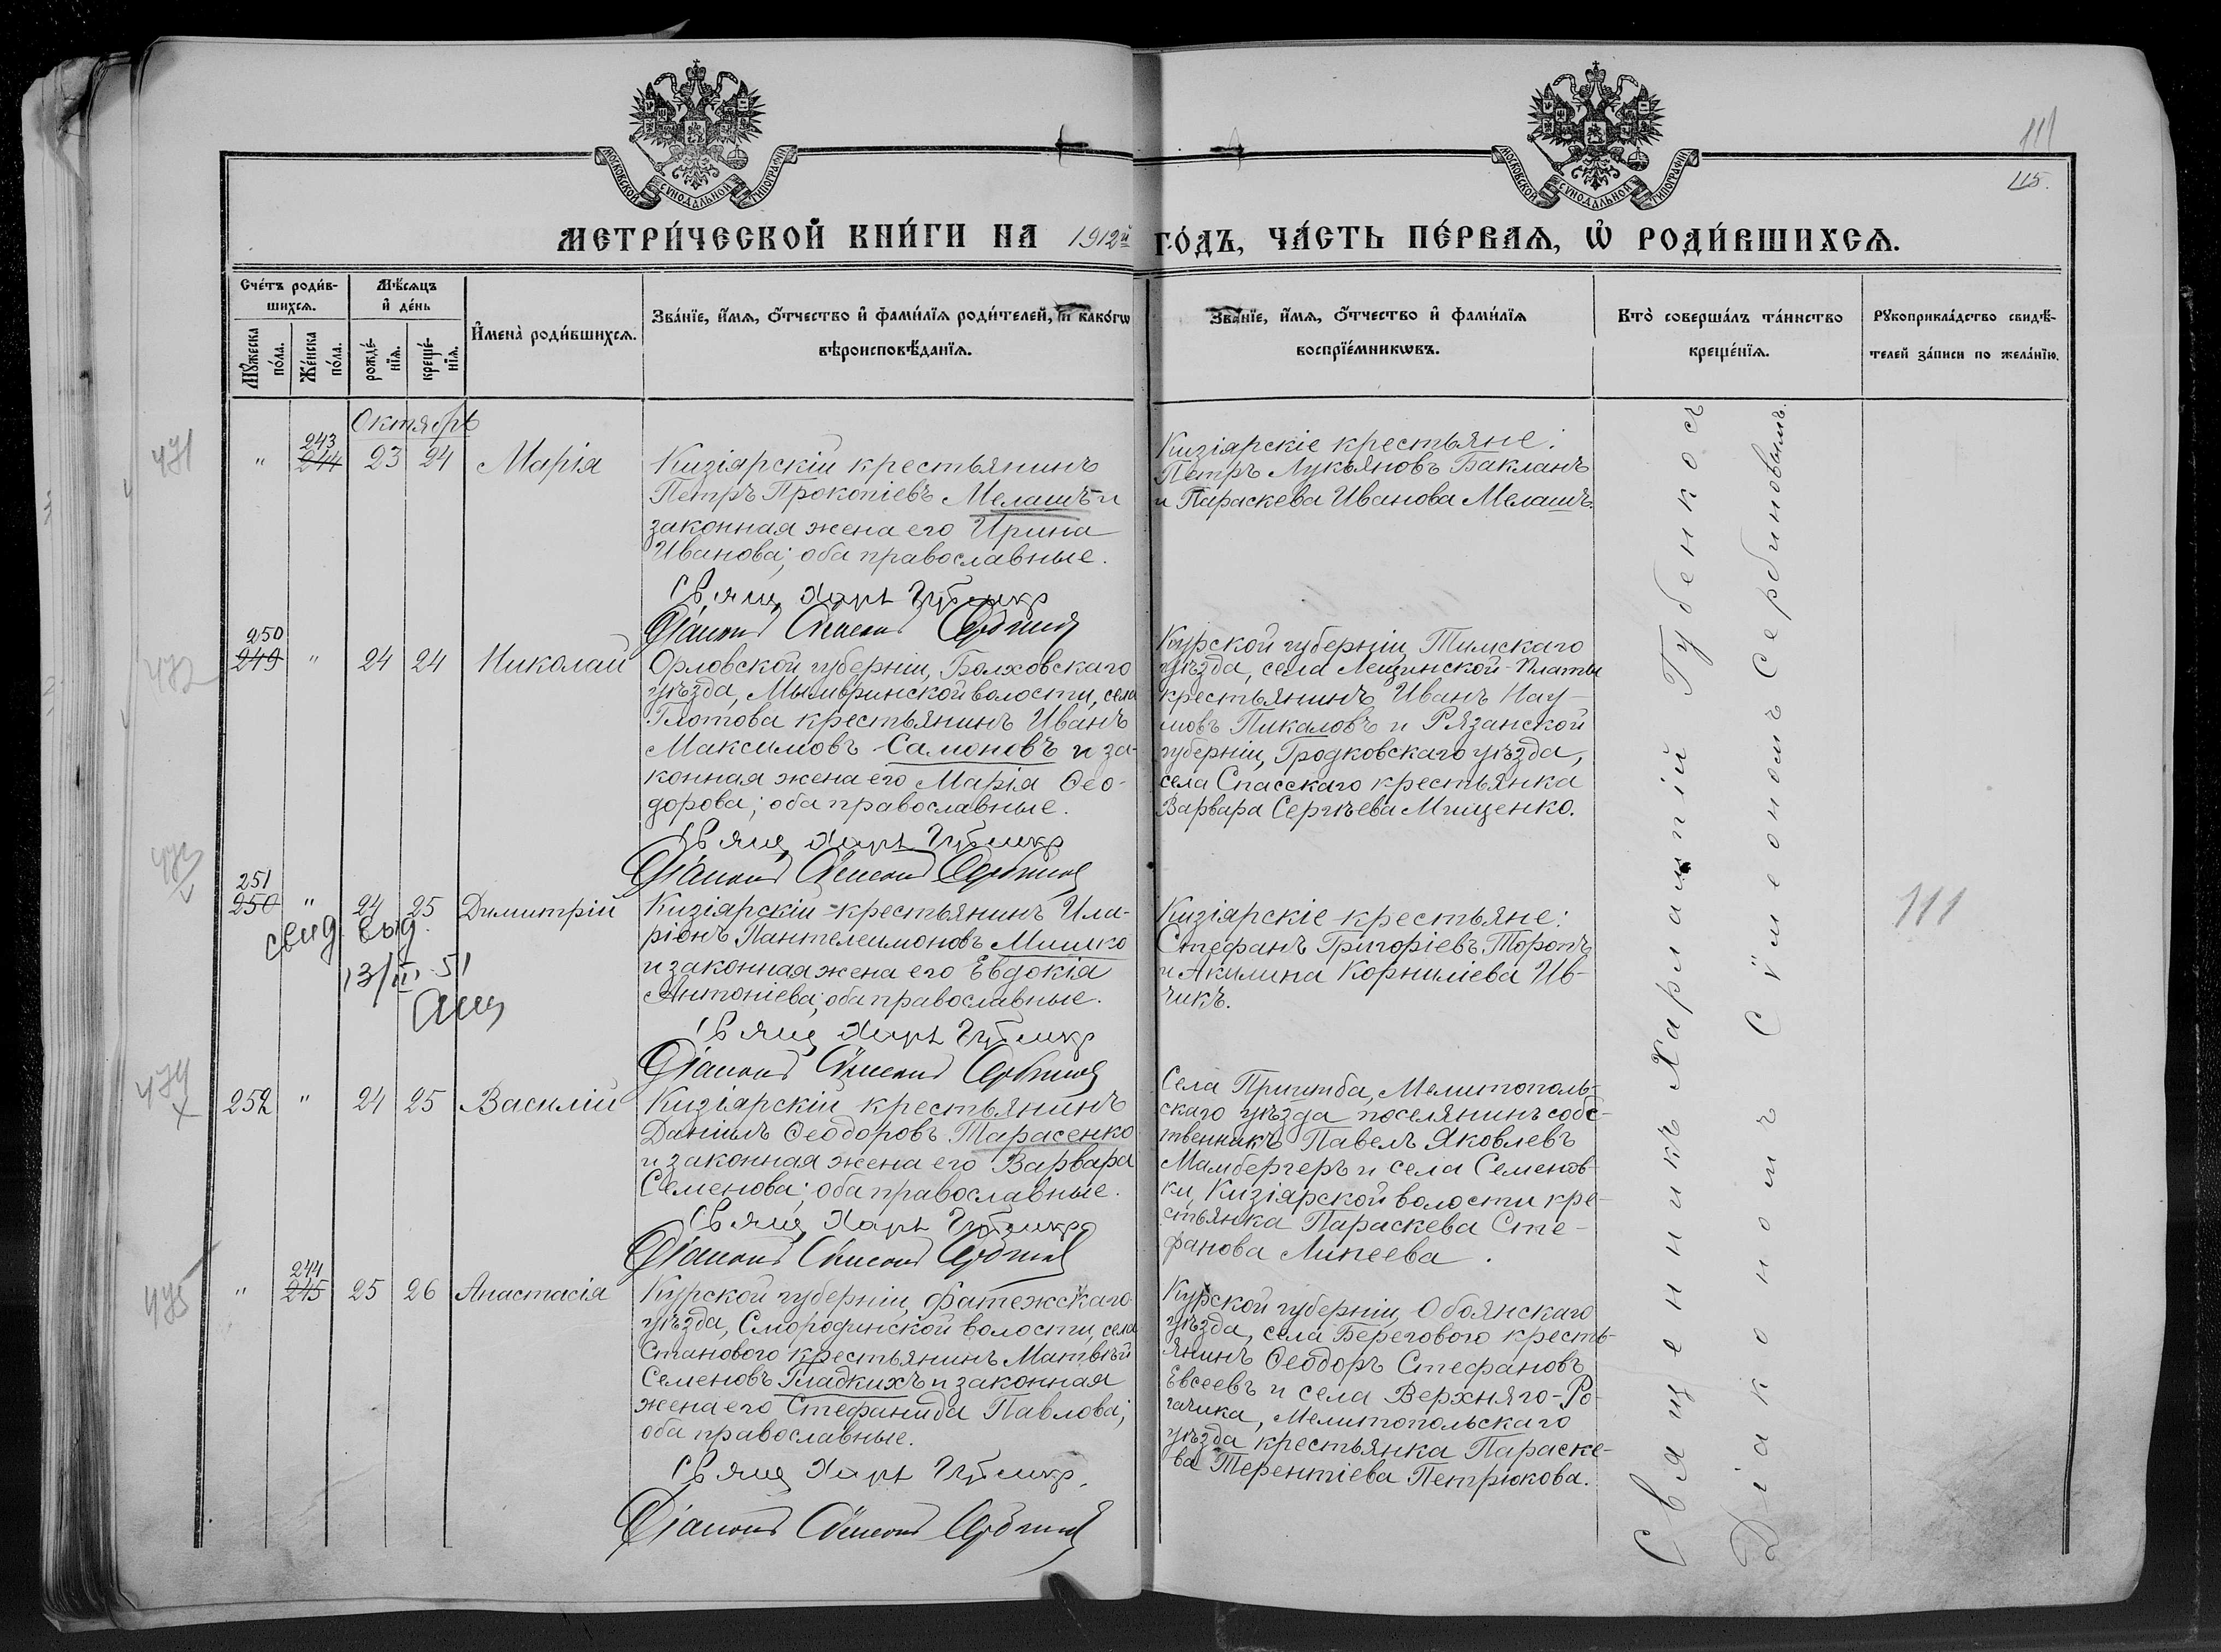 111
115.
МОСКОВСКОЙ СУНОДАЛЬНОЙ ТИПОГРАФІИ
МОСКОВСКОЙ СУНОДАЛЬНОЙ ТИПОГРАФІИ
МЕТРИ́ЧЕСКОЙ КНИ́ГИ НА 1912й ГО́ДЪ, ЧА́СТЬ ПЕ́РВАЯ, Ѡ҆ РОДИ́ВШИХСѦ.
Сче́тъ роди́в-
шихсѧ.
Мѣ́сѧцъ
и҆ де́нь
Мꙋ́жеска по́ла.
Же́нска по́ла.
рожде́-
нїѧ.
креще́-
нїѧ.
И҆мена̀ роди́вшихсѧ.
Зва́нїе, и҆́мѧ, ѻ҆́тчество и҆ фами́лїѧ роди́телей, и҆ како́гѡ
вѣроисповѣ́данїѧ.
Зва́нїе, и҆́мѧ, ѻ҆́тчество и҆ фами́лїѧ
воспрїе́мникѡвъ.
Кто̀ соверша́лъ та́инство
креще́нїѧ.
Рꙋкоприкла́дство свидѣ́-
телей за́писи по жела́нїю.
Октябрь
471
" 243 244 23 24 Марія
Кизіярскій крестьянинъ
Петръ Прокопіевъ Мелашъ и
законная жена его Ирина
Иванова; оба православные.
Свящ. Харл. Губенко
Діаконъ Сѵмеонъ Сербинов
Кизіярскіе крестьяне:
Петръ Лукьяновъ Бакланъ
и Параскева Иванова Мелашъ.
472
250 249 " 24 24 Николай
Орловской губерніи, Болховскаго
уѣзда, Мымвринской волости, села
Глотова крестьянинъ Иванъ
Максимовъ Самоновъ и за-
конная жена его Марія Ѳео-
дорова; оба православные.
Свящ. Харл. Губенко
Діаконъ Сѵмеонъ Сербинов
Курской губерніи, Тимскаго
уѣзда, села Лещинской-Платы
крестьянинъ Иванъ Нау-
мовъ Пикаловъ и Рязанской
губерніи, Гродковскаго уѣзда,
села Спасскаго крестьянка
Варвара Сергѣева Мищенко.
473
251 250 " 24 25 Димитрій
свид. выд.
13/II 51
Кизіярскій крестьянинъ Ила-
ріонъ Пантелеимоновъ Мишко
и законная жена его Евдокія
Антоніева; оба православные.
Свящ. Харл. Губенко
Діаконъ Сѵмеонъ Сербинов
Кизіярскіе крестьяне:
Стефанъ Григоріевъ Торопъ
и Акилина Корниліева Ив-
чикъ.
111
474
252 " 24 25 Василій
Кизіярскій крестьянинъ
Даніилъ Ѳеодоровъ Тарасенко
и законная жена его Варвара
Семенова; оба православные.
Свящ. Харл. Губенко
Діаконъ Сѵмеонъ Сербинов
Села Пришиба, Мелитополь-
скаго уѣзда поселянинъ собс-
твенникъ Павелъ Яковлевъ
Мамбергеръ и села Семенов-
ки, Кизіярской волости кре-
стьянка Параскева Сте-
фанова Линеева.
475
" 244 245 25 26 Анастасія
Курской губерніи, Фатежскаго
уѣзда, Смородинской волости, села
Станового крестьянинъ Матвѣй
Семеновъ Гладкихъ и законная
жена его Стефанида Павлова;
оба православные.
Свящ. Харл. Губенко.
Діаконъ Сѵмеонъ Сербинов
Курской губерніи, Обоянскаго
уѣзда, села Берегового кресть-
янинъ Ѳеодоръ Стефановъ
Евсеевъ и села Верхняго-Ро-
гачика, Мелитопольскаго
уѣзда крестьянка Параске-
ва Терентіева Петрюкова.
Священникъ Харлампій Губенко съ
Діакономъ Сѵмеономъ Сербиновымъ.